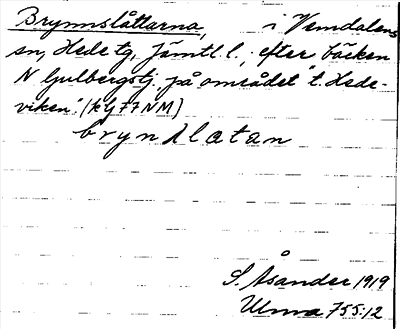 Brynnslåttarna, i Vemdalens
sn, Hede tg, Jämtl. l., efter bäcken
N Gulbergstj. på området "t. Hede-
viken". (kg 77 NM)
brynslatan
S. Åsander 1919
Ulma 755:12